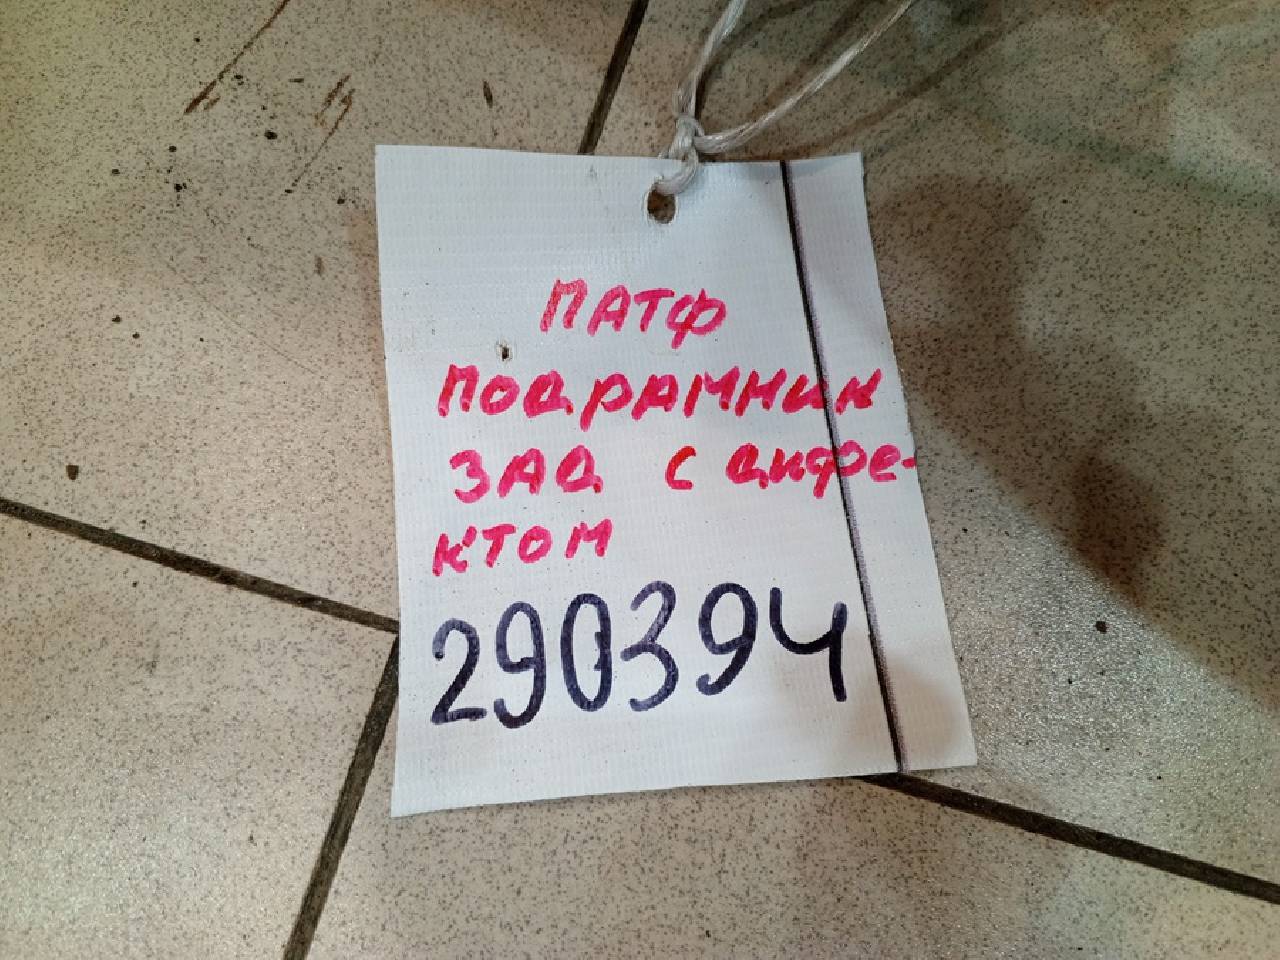 ПАТФ
ПОДРАМНИК
ЗАД С ДИФФЕ-
КТОМ
290394